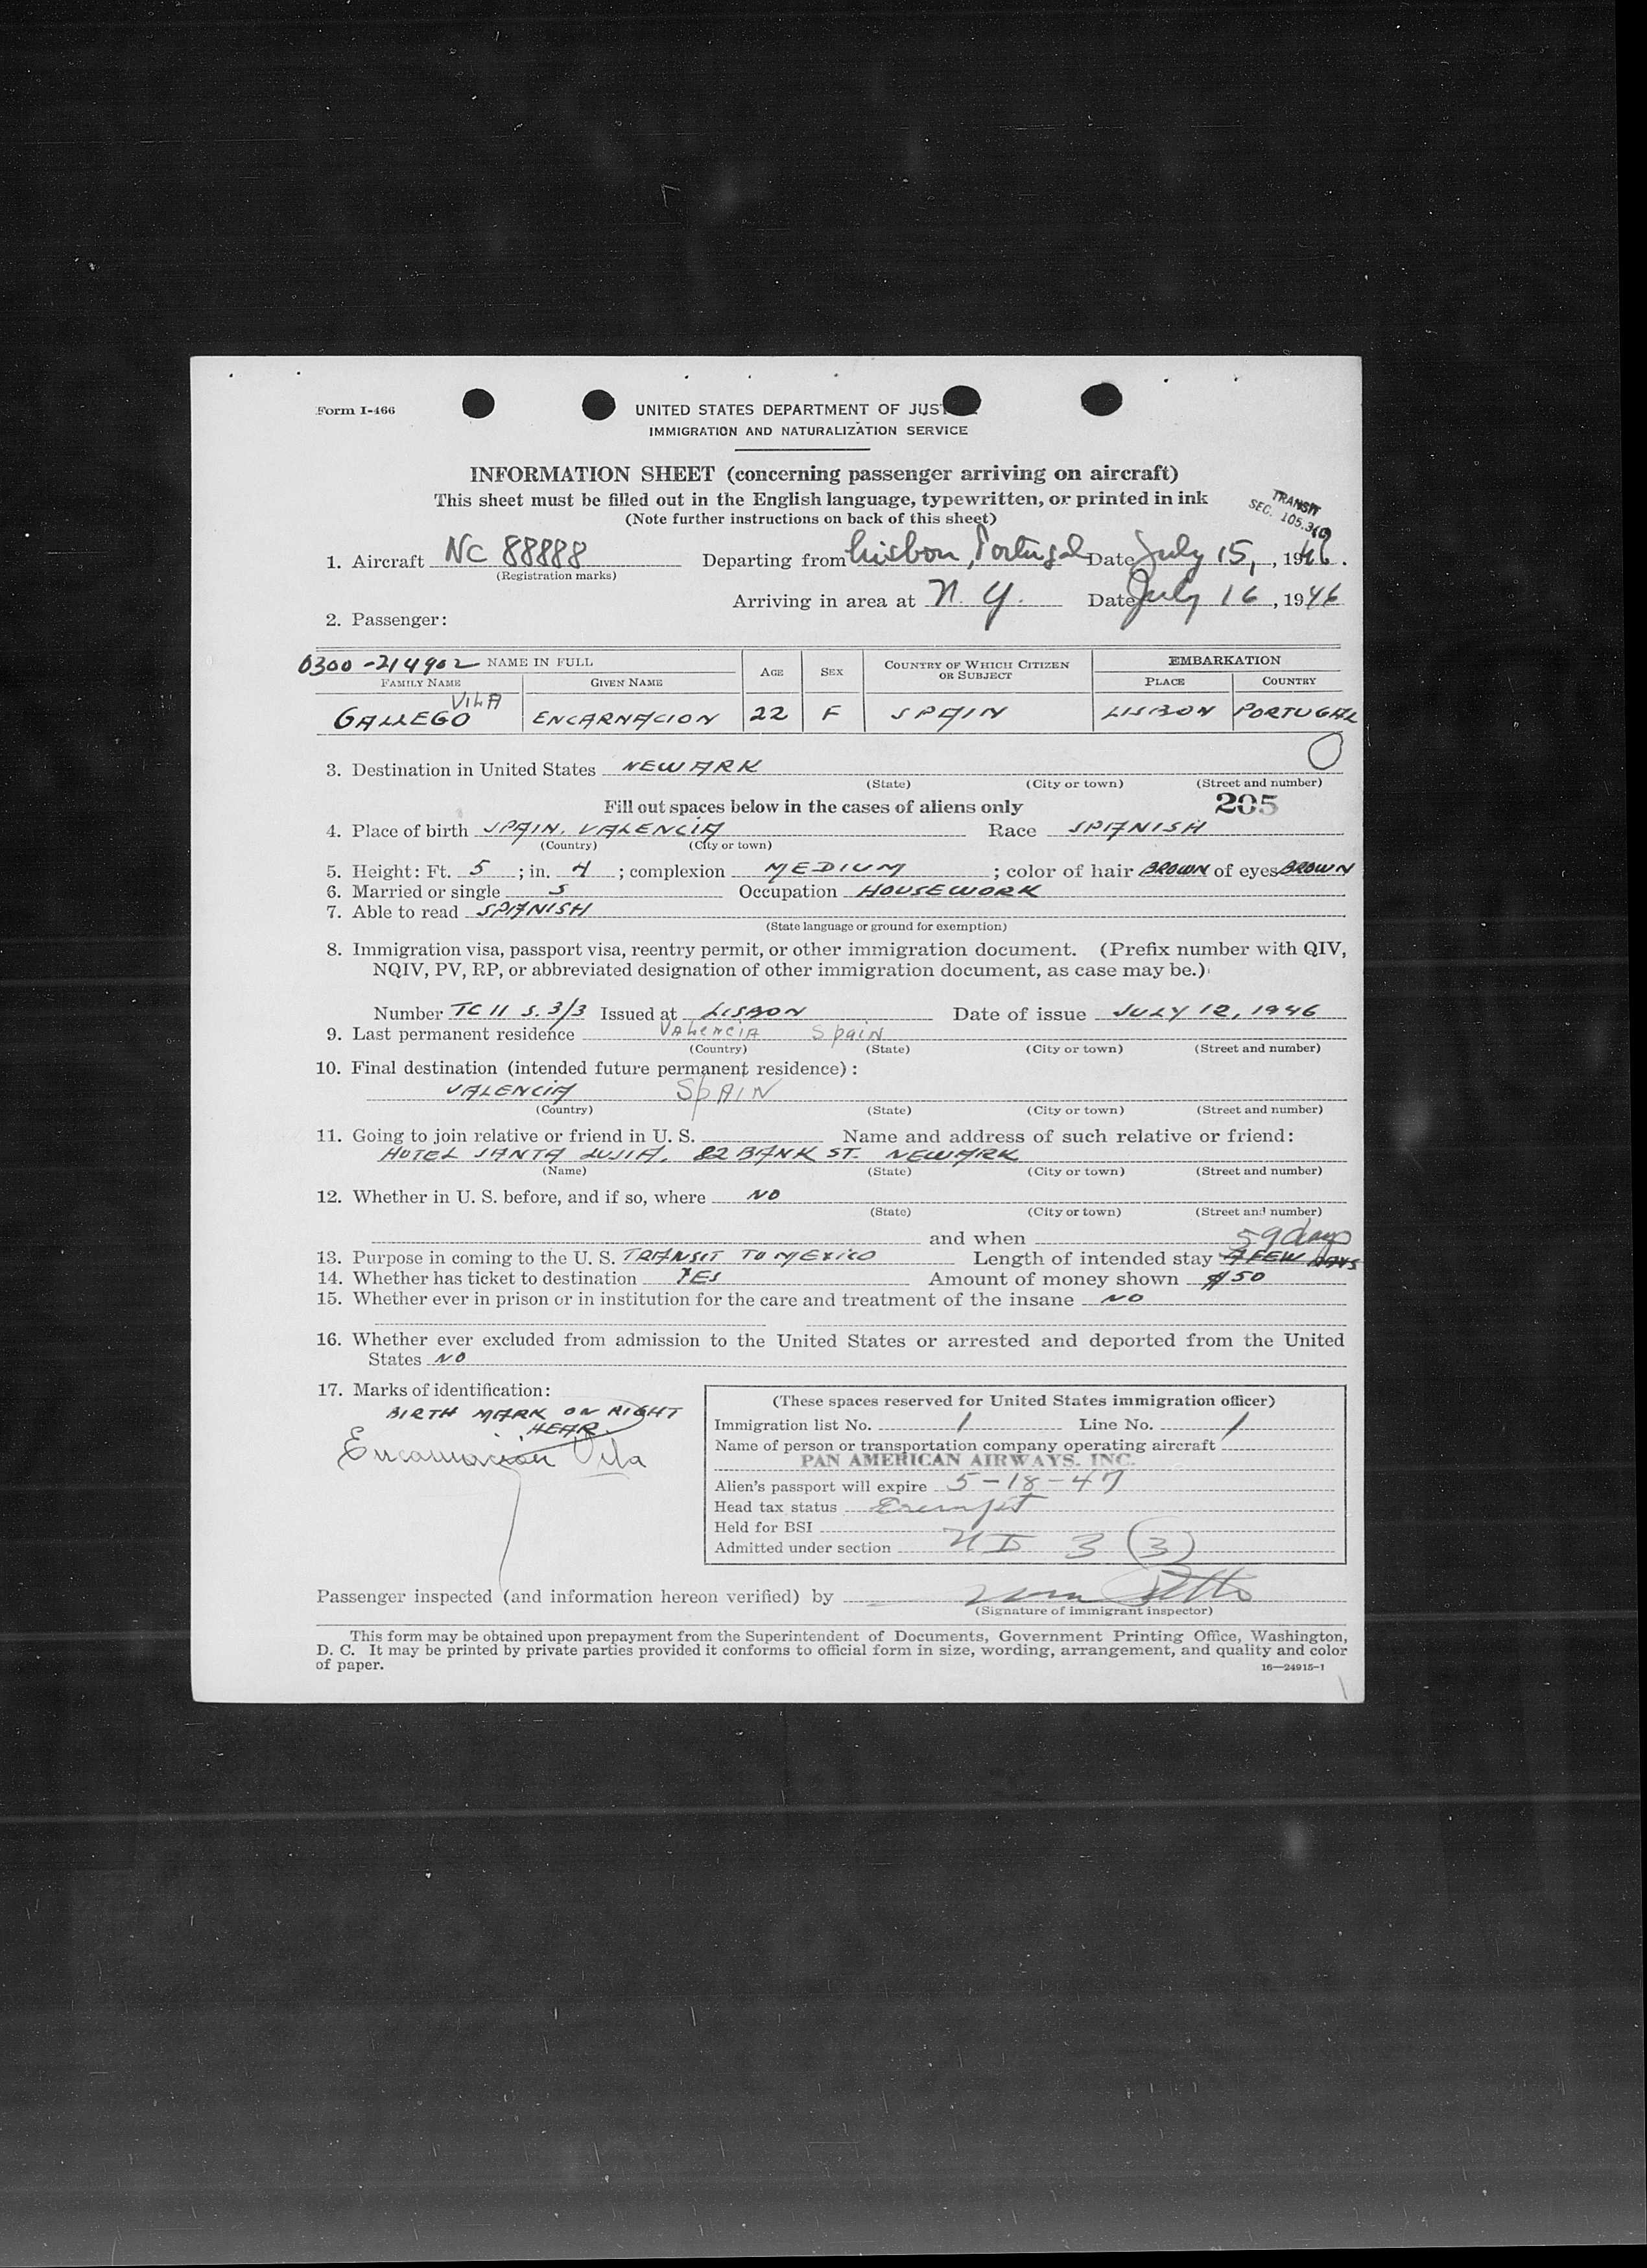 Form I-466
UNITED STATES DEPARTMENT OF JUST
IMMIGRATION AND NATURALIZATION SERVICE
INFORMATION SHEET (concerning passenger arriving on aircraft)
This sheet must be filled out in the English language, typewritten, or printed in ink
(Note further instructions on back of this sheet)
TRANSIT
SEC. 105.3(
1. Aircraft NC 88888 Departing from Lisbon, Portugal Date July 15, , 1946.
(Registration marks)
Arriving in area at N. Y. Date July 16, 1946
2. Passenger:
0300-214902 NAME IN FULL AGE SEX COUNTRY OF WHICH CITIZEN OR SUBJECT EMBARKATION
FAMILY NAME GIVEN NAME PLACE COUNTRY
VILA
GALLEGO ENCARNACION 22 F SPAIN LISBON PORTUGAL
3. Destination in United States NEWARK
(State) (City or town) (Street and number)
Fill out spaces below in the cases of aliens only 205
4. Place of birth SPAIN, VALENCIA Race SPANISH
(Country) (City or town)
5. Height: Ft. 5 ; in. 4 ; complexion MEDIUM ; color of hair BROWN of eyes BROWN
6. Married or single S Occupation HOUSEWORK
7. Able to read SPANISH
(State language or ground for exemption)
8. Immigration visa, passport visa, reentry permit, or other immigration document. (Prefix number with QIV,
NQIV, PV, RP, or abbreviated designation of other immigration document, as case may be.)
Number TC 11 S. 3/3 Issued at LISBON Date of issue JULY 12, 1946
9. Last permanent residence VALENCIA Spain
(Country) (State) (City or town) (Street and number)
10. Final destination (intended future permanent residence):
VALENCIA SpAIN
(Country) (State) (City or town) (Street and number)
11. Going to join relative or friend in U. S. Name and address of such relative or friend:
HOTEL SANTA LUSIA, 82 BANK ST. NEWARK
(Name) (State) (City or town) (Street and number)
12. Whether in U. S. before, and if so, where NO
(State) (City or town) (Street and number)
and when 59 days
13. Purpose in coming to the U. S. TRANSIT TO MEXICO Length of intended stay A FEW DAYS
14. Whether has ticket to destination YES Amount of money shown $50
15. Whether ever in prison or in institution for the care and treatment of the insane NO
16. Whether ever excluded from admission to the United States or arrested and deported from the United
States NO
17. Marks of identification:
BIRTH MARK ON RIGHT
HEAR.
Encarnación Vila
(These spaces reserved for United States immigration officer)
Immigration list No. 1 Line No. 1
Name of person or transportation company operating aircraft
PAN AMERICAN AIRWAYS. INC.
Alien's passport will expire 5-18-47
Head tax status Exempt
Held for BSI
Admitted under section 3 (3)
Passenger inspected (and information hereon verified) by
(Signature of immigrant inspector)
This form may be obtained upon prepayment from the Superintendent of Documents, Government Printing Office, Washington,
D. C. It may be printed by private parties provided it conforms to official form in size, wording, arrangement, and quality and color
of paper.
16—24915-1